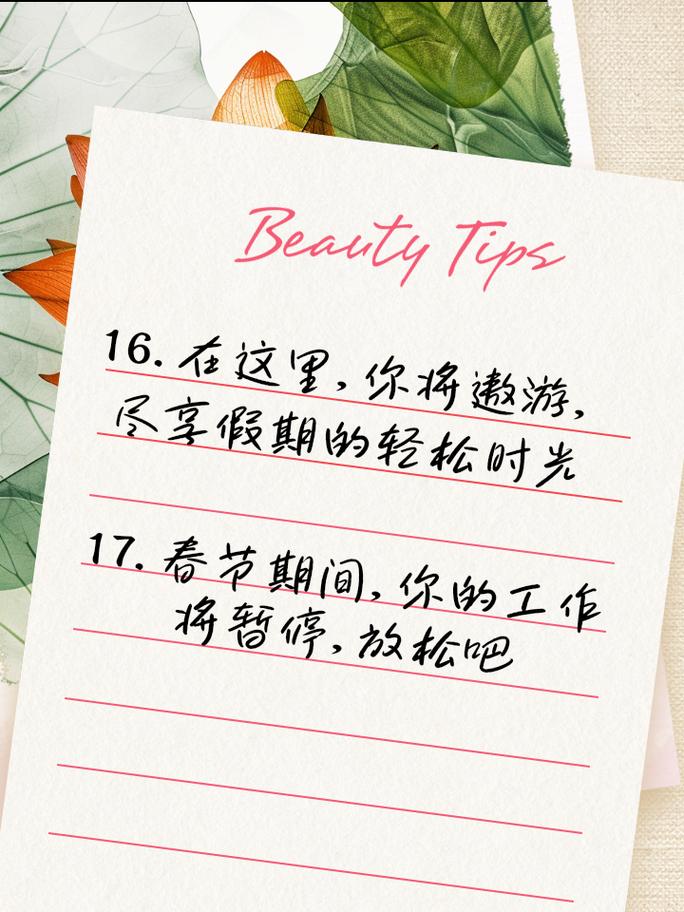 Beauty Tips
16. 在这里，你将遨游，
尽享假期的轻松时光
17. 春节期间，你的工作
将暂停，放松吧